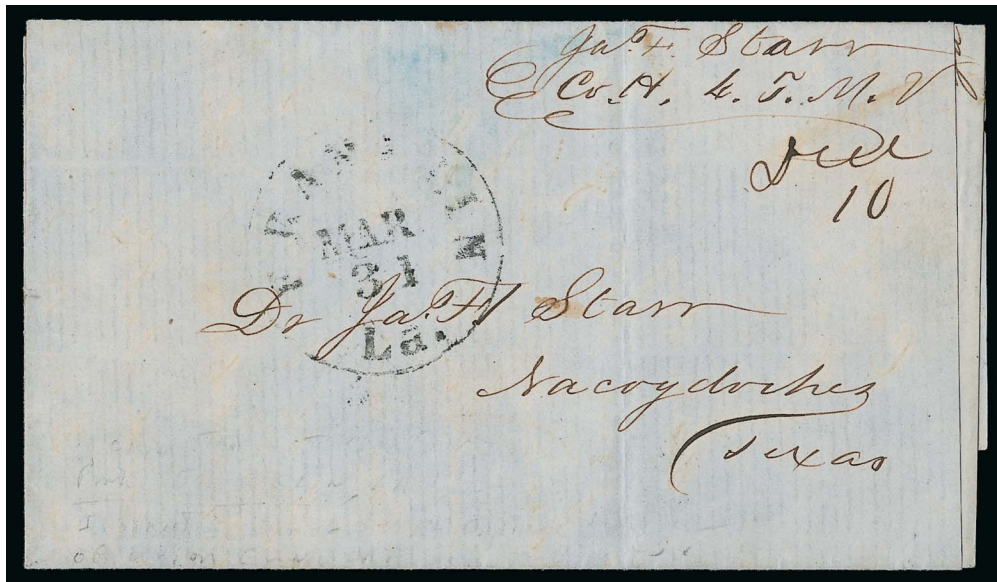 Jas. F. Starr
Co. H, 4. T. M. V
Due
10
FRANKLIN
MAR
31
La.
Dr Jas. F. Starr
Nacogdoches
Texas